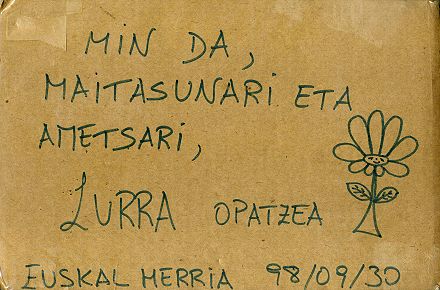 MIN DA,
MAITASUNARI ETA
AMETSARI,
LURRA OPATZEA
EUSKAL HERRIA 98/09/30